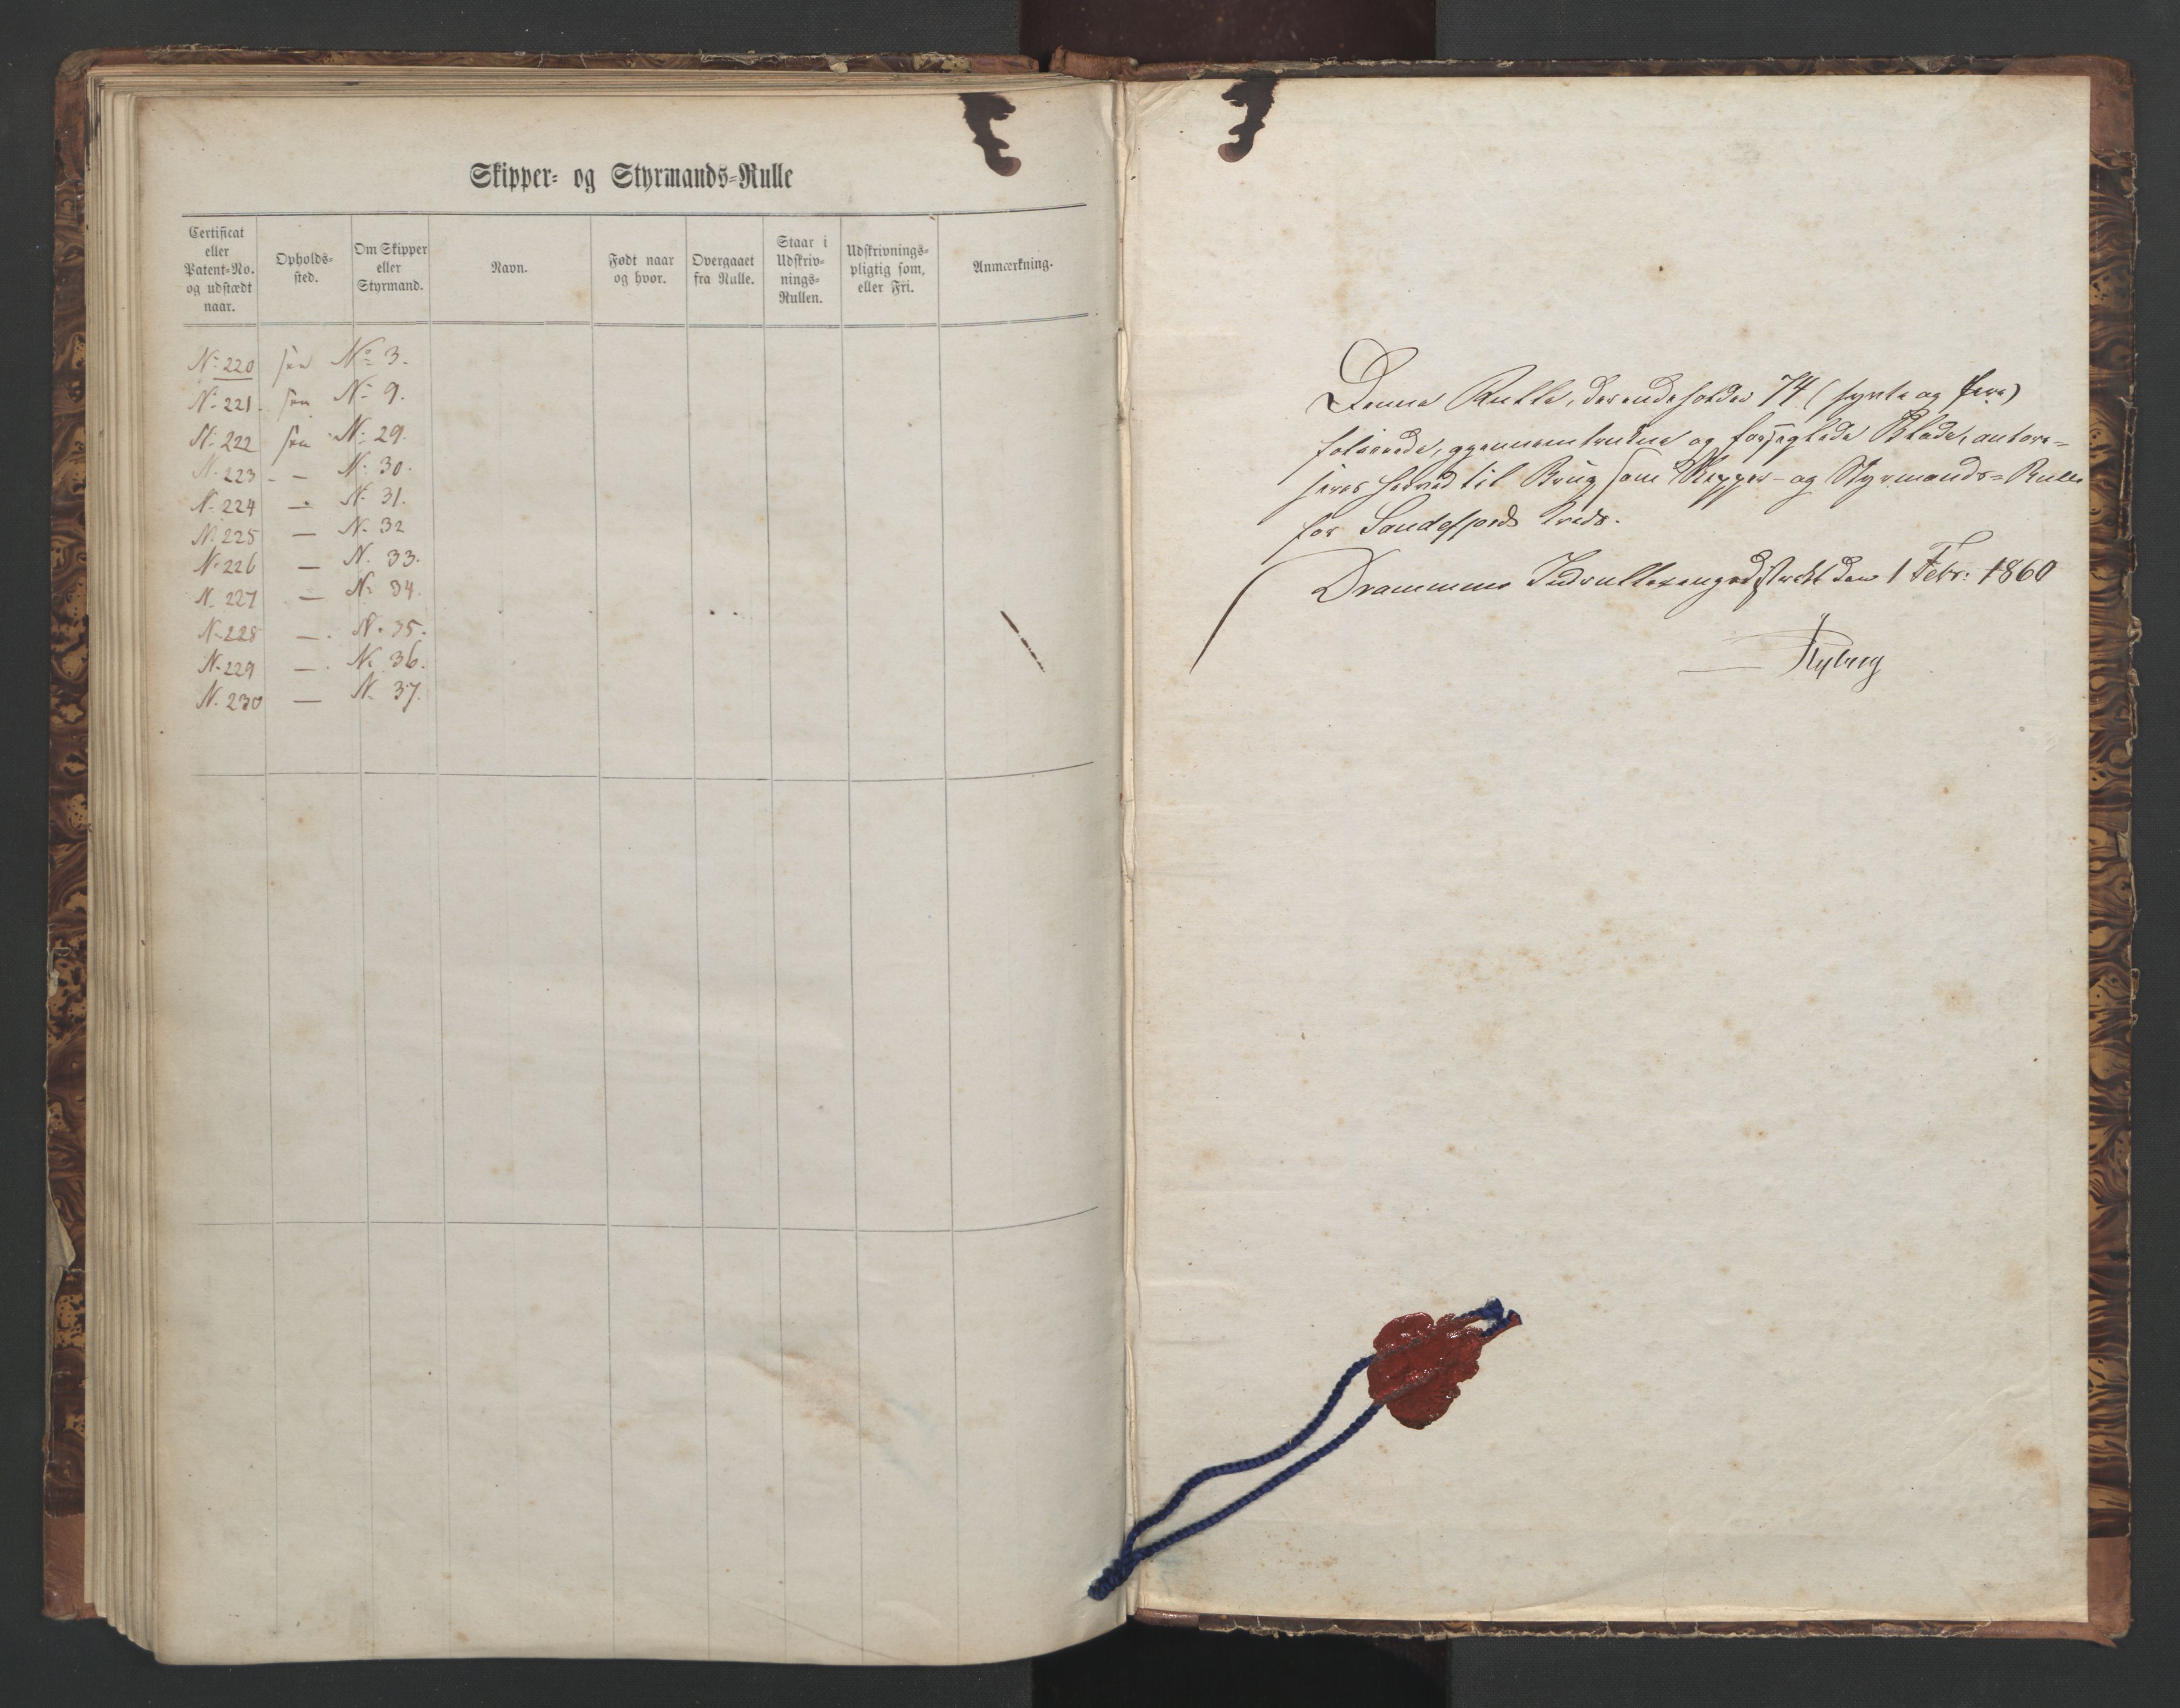 Skipper- og Styrmands-Rulle
Certificat eller Patent-No. og udstædt naar.
Opholds-sted.
Om Skipper eller Styrmand.
Navn.
Født naar og hvor.
Overgaaet fra Rulle.
Staar i Udskriv-nings-Rullen.
Udskrivnings-pligtig som, eller Fri.
Anmærkning.
No 220 see No 3.
No 221. see No 9.
No 222 see No 29.
N. 223 - - N. 30.
N. 224 — N. 31.
N. 225 — N. 32
N. 226 — N. 33.
N. 227 — N. 34.
N. 228 — . N. 35.
N. 229 — . N. 36.
N. 230 — N. 37.
Denne Rulle, der indeholder 74 (syvti og fire)
folierede, gjennemtrukne og forseglede Blade, autori=
seres herved til Brug som Skipper- og Styrmands=Rulle
for Sandefjords Kreds.
Drammens Indrulleringsdistrikt den 1 Febr: 1860